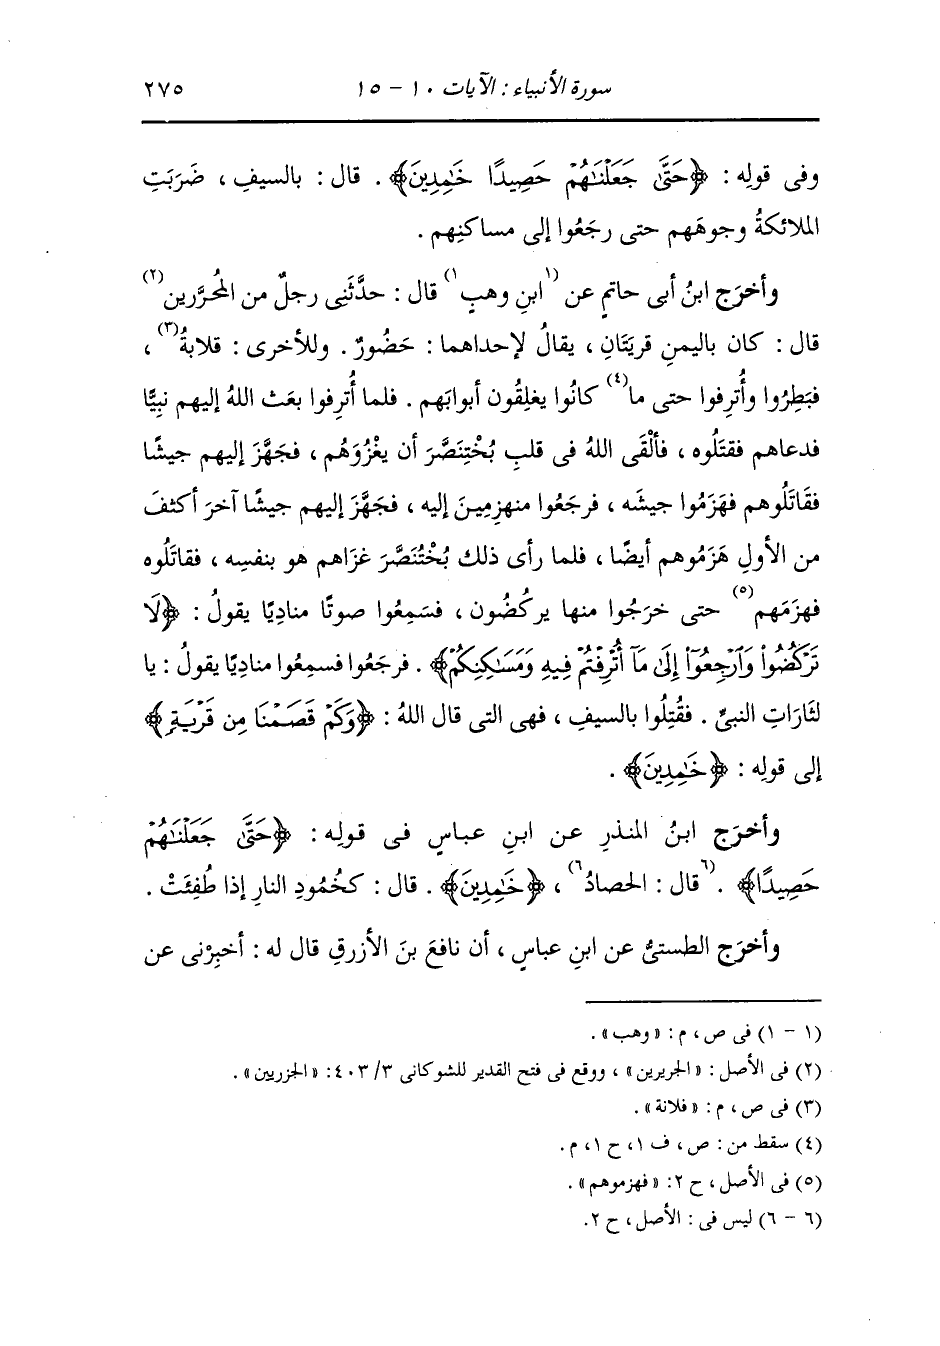 سورة الأنبياء : الآيات ١٠ - ١٥ ٢٧٥
وفى قولِه : ﴿حَتَّىٰ جَعَلْنَـٰهُمْ حَصِيدًا خَـٰمِدِينَ﴾ . قال : بالسيفِ ، ضَرَبَتِ
الملائكةُ وجوهَهم حتى رجَعُوا إلى مساكنِهم .
وأخرَج ابنُ أبى حاتمٍ عن (١ابنِ وهبٍ١) قال : حدَّثَنِى رجلٌ من المُحَرَّرين(٢)
قال : كان باليمنِ قريَتَانِ ، يقالُ لإحداهما : حَضُورٌ . وللأخرى : قلابةُ(٣) ،
فبَطِرُوا وأُترِفوا حتى ما(٤) كانُوا يغلِقُون أبوابَهم . فلما أُترِفوا بعَث اللهُ إليهم نبِيًّا
فدعاهم فقتَلُوه ، فألْقَى اللهُ فى قلبِ بُخْتِنَصَّرَ أن يغْزُوَهُم ، فجَهَّزَ إليهم جيشًا
فقَاتَلُوهم فهَزَمُوا جيشَه ، فرجَعُوا منهزِمِينَ إليه ، فجَهَّزَ إليهم جيشًا آخرَ أكثفَ
من الأولِ هَزَمُوهم أيضًا ، فلما رأى ذلك بُخْتُنَصَّرَ غزَاهم هو بنفسِه ، فقاتَلُوه
فهزَمَهم(٥) حتى خرَجُوا منها يركُضُون ، فسَمِعُوا صوتًا منادِيًا يقولُ : ﴿لَا
تَرْكُضُوا۟ وَٱرْجِعُوٓا۟ إِلَىٰ مَآ أُتْرِفْتُمْ فِيهِ وَمَسَـٰكِنِكُمْ﴾ . فرجَعُوا فسمِعُوا منادِيًا يقولُ : يا
لثَارَاتِ النبىِّ . فقُتِلُوا بالسيفِ ، فهى التى قال اللهُ : ﴿وَكَمْ قَصَمْنَا مِن قَرْيَةٍ﴾
إلى قولِه : ﴿خَـٰمِدِينَ﴾ .
وأخرَج ابنُ المنذرِ عن ابنِ عباسٍ فى قولِه : ﴿حَتَّىٰ جَعَلْنَـٰهُمْ
حَصِيدًا﴾ . (٦قال : الحصادُ٦) ، ﴿خَـٰمِدِينَ﴾ . قال : كخُمُودِ النارِ إذا طُفِئَتْ .
وأخرَج الطستىُّ عن ابنِ عباسٍ ، أن نافعَ بنَ الأزرقِ قال له : أخبِرْنى عن
(١ - ١) فى ص ، م : « وهب » .
(٢) فى الأصل : « الجريرين » ، ووقع فى فتح القدير للشوكانى ٣/ ٤٠٣ : « الجزريين » .
(٣) فى ص ، م : « فلانة » .
(٤) سقط من : ص ، ف ١ ، ح ١ ، م .
(٥) فى الأصل ، ح ٢ : « فهزموهم » .
(٦ - ٦) ليس فى : الأصل ، ح ٢ .